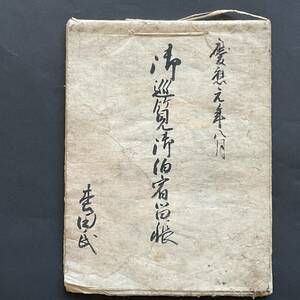 慶應元年八月
御巡覧御泊宿留帳